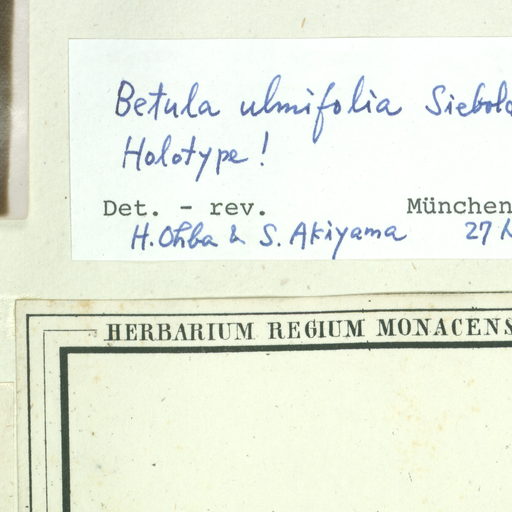 Betula ulmifolia Siebold
Holotype!
Det. - rev. München
H. Ohba & S. Akiyama 27
HERBARIUM REGIUM MONACENS